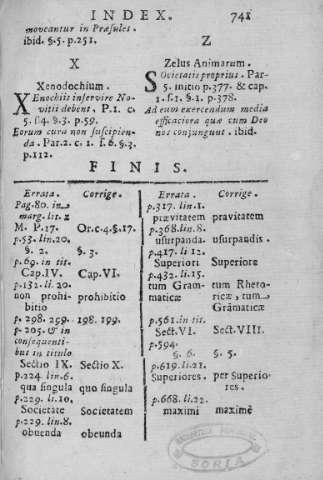 INDEX. 741
moveantur in Præsules.
ibid. §. 5. p. 251.
X
Xenodochium.
XEnochiis inservire No-
vitii debent. P. 1. c.
5. f. 4. §. 3. p. 59.
Eorum cura non suscipien-
da. Par. 2. c. 1. f. 6. §. 3.
p. 112.
Z
Zelus Animarum.
SOcietatis proprius. Par-
5. initio p. 377. & cap.
1. f. 1. §. 1. p. 378.
Ad eum exercendum media
efficaciora quæ cum Deo
nos conjungunt. ibid.
FINIS.
Errata. Corrige.
Pag. 80. in
marg. lit. z
M. P. 17. Or. c. 4. §. 17.
p. 53. lin. 20.
§. 2. §. 3.
p. 69. in tit.
Cap. IV. Cap. VI.
p. 132. li. 20.
non prohi- prohibitio
bitio
p. 298. 299. 198. 199.
p. 205. & in
consequenti-
bus in titulo
Sectio IX. Sectio X.
p. 224. lin. 6.
qua singula quo singula
p. 229. li. 10.
Societate Societatem
p. 229. lin. 8.
obuenda obeunda
Errata. Corrige.
p. 317. lin. 1.
prævitatem pravitatem
p. 368. lin. 8.
usurpanda. usurpandis.
p. 417. li. 12.
Superiori Superiore
p. 432. li. 15.
tum Gram- tum Rheto-
maticæ ricæ, tum
Grāmaticæ
p. 561. in tit.
Sect. VI. Sect. VIII.
p. 594.
§. 6. §. 5.
p. 619. li. 21.
Superiores. per Superio-
res.
p. 668. li. 22.
maximi maximè
SORIA